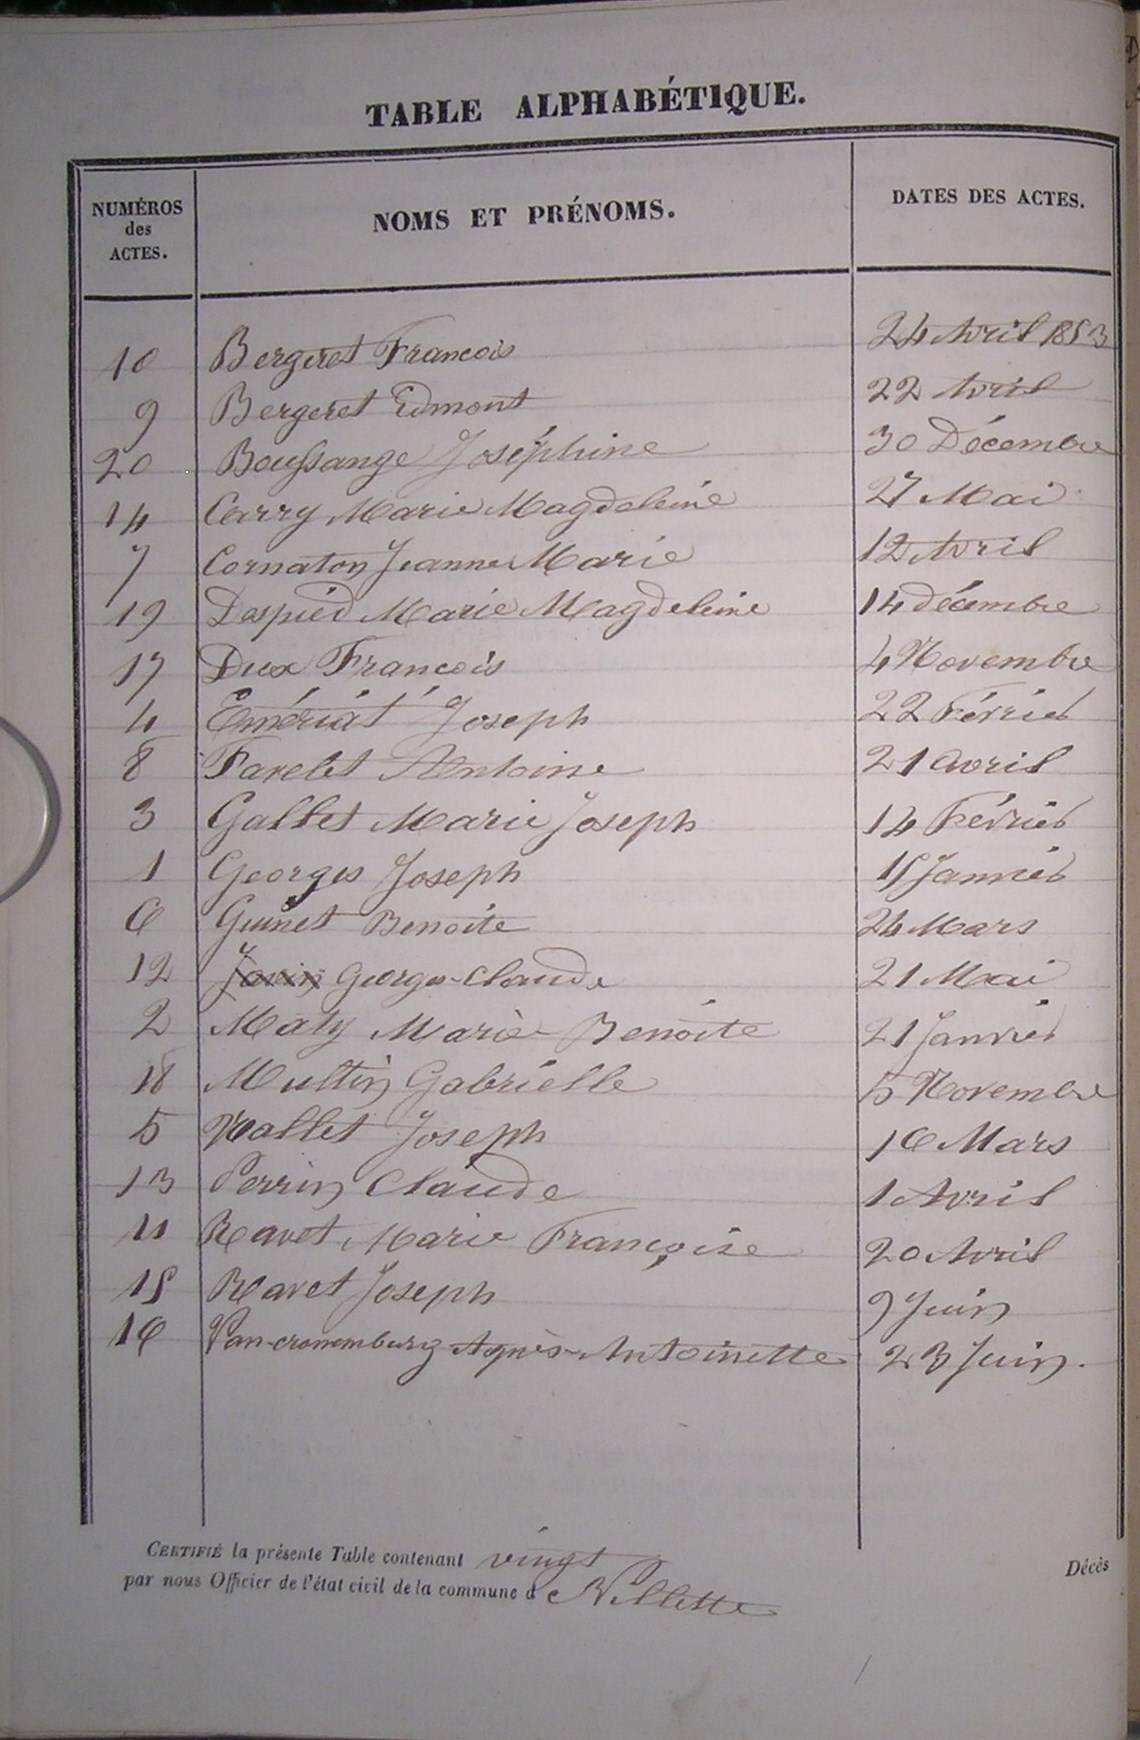 TABLE ALPHABÉTIQUE.
NUMÉROS des ACTES. NOMS ET PRÉNOMS. DATES DES ACTES.
10 Bergeret Francois 24 Avril 1853
9 Bergeret Edmont 22 Avril
20 Boussange Joséphine 30 Décembre
14 Carry Marie Magdeleine 27 Mai
7 Cornaton Jeanne Marie 12 Avril
19 Daspied Marie Magdeleine 14 décembre
17 Dux Francois 4 Novembre
4 Émériat Joseph 22 Février
8 Favelet Antoine 21 avril
3 Gallet Marie Joseph 14 Février
1 Georges Joseph 15 Janvier
6 Guinet Benoite 24 Mars
12 Georges-Claude 21 Mai
2 Maly Marie Benoite 21 Janvier
18 Multin Gabrielle 5 Novembre
5 Nallet Joseph 16 Mars
13 Perrin Claude 1 Avril
11 Ravet Marie Françoise 20 Avril
15 Ravet Joseph 9 Juin
16 Van-cronemburg Agnès-Antoinette 23 Juin.
CERTIFIÉ la présente Table contenant vingt Décès
par nous Officier de l'état civil de la commune de Villette